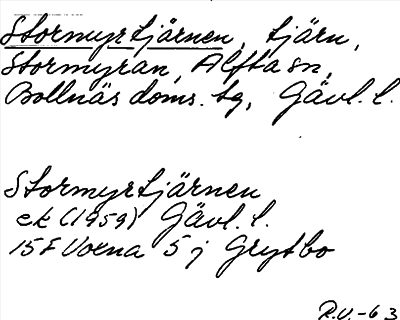 Stormyrtjärnen, tjärn,
Stormyran, Alfta sn,
Bollnäs doms. tg, Gävl. l.
Stormyrtjärnen
ek (1959) Gävl. l.
15F Voxna 5 j Grytbo
R.V.-63